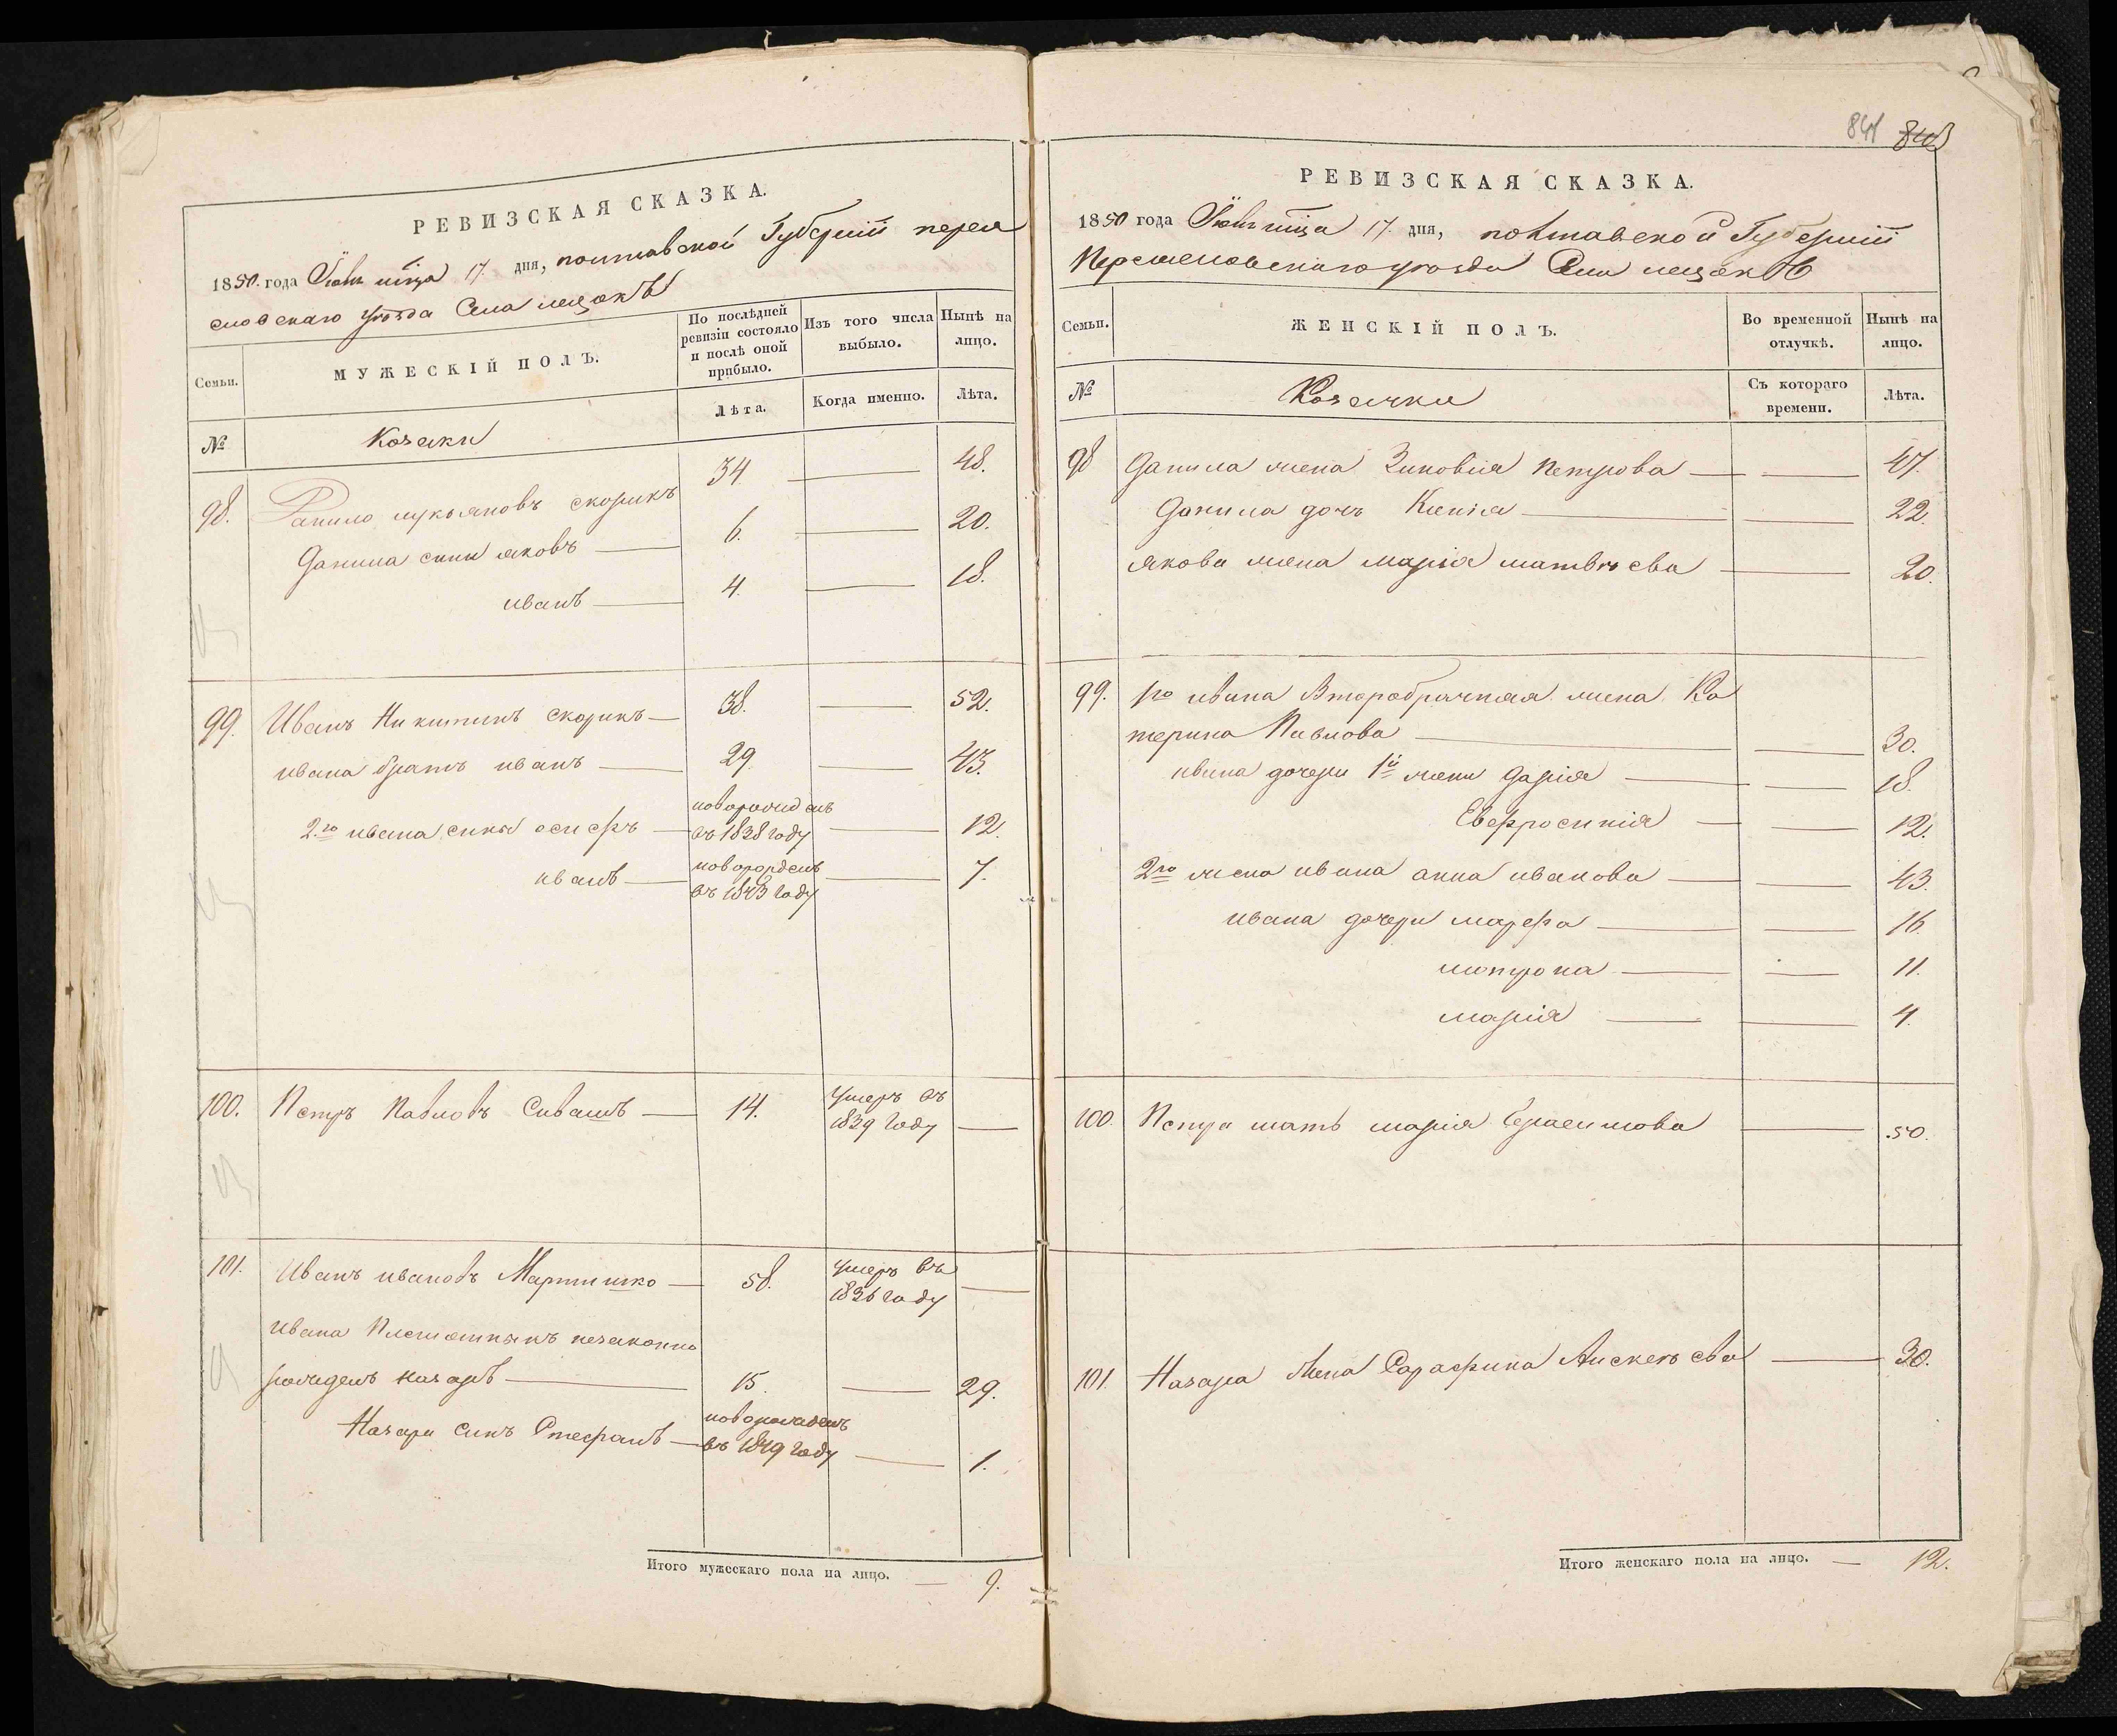 РЕВИЗСКАЯ СКАЗКА.
1850 года Іюня мца 17 дня, полтавской Губерніи перея
словскаго уѣзда Села лецокъ
Семьи.
МУЖЕСКІЙ ПОЛЪ.
По послѣдней ревизіи состояло и послѣ оной прибыло.
Изъ того числа выбыло.
Нынѣ на лицо.
№
Козаки
Лѣта.
Когда именно.
Лѣта.
98. Данило лукьяновъ скорикъ 34 — 48.
Данила сины яковъ — 6. — 20.
иванъ — 4. — 18.
99. Иванъ Никитинъ скорикъ — 38. — 52.
ивана братъ иванъ — 29 — 43.
2го ивана сины осифъ — новорожденъ въ 1838 году — 12.
иванъ — новорожденъ въ 1843 году — 7.
100. Петръ Павловъ Сивашъ — 14. умеръ въ 1839 году —
101. Иванъ ивановъ Мартишко — 58. умеръ въ 1836 году —
Ивана Племянникъ незаконно
рожденъ назаръ — 15. — 29.
Назара синъ Стефанъ — новорожденъ въ 1849 году — 1.
Итого мужескаго пола на лицо. — 9.
841 840
РЕВИЗСКАЯ СКАЗКА.
1850 года Іюня мца 17 дня, полтавской Губерніи
Переяславскаго уѣзда Села лецокъ
Семьи.
ЖЕНСКІЙ ПОЛЪ.
Во временной отлучкѣ.
Нынѣ на лицо.
№
Козачки
Съ котораго времени.
Лѣта.
98 Данила жена Зиновия петрова — — 47.
Данила дочъ Ксенія — — 22.
якова жена марія матвѣева — 20.
99. 1го ивана Второбрачная жена Ка
терина Павлова — — 30.
ивана дочери 1й жены Дарія — — 18.
Евфросинія — — 12.
2го жена ивана анна иванова — — 43.
ивана дочери марфа — — 16.
мотрона — — 11.
марія — — 4.
100. Петра мать марія Герасимова — 50.
101. Назара Жена Сарафина Алексѣева — 30.
Итого женскаго пола на лицо. — 12.